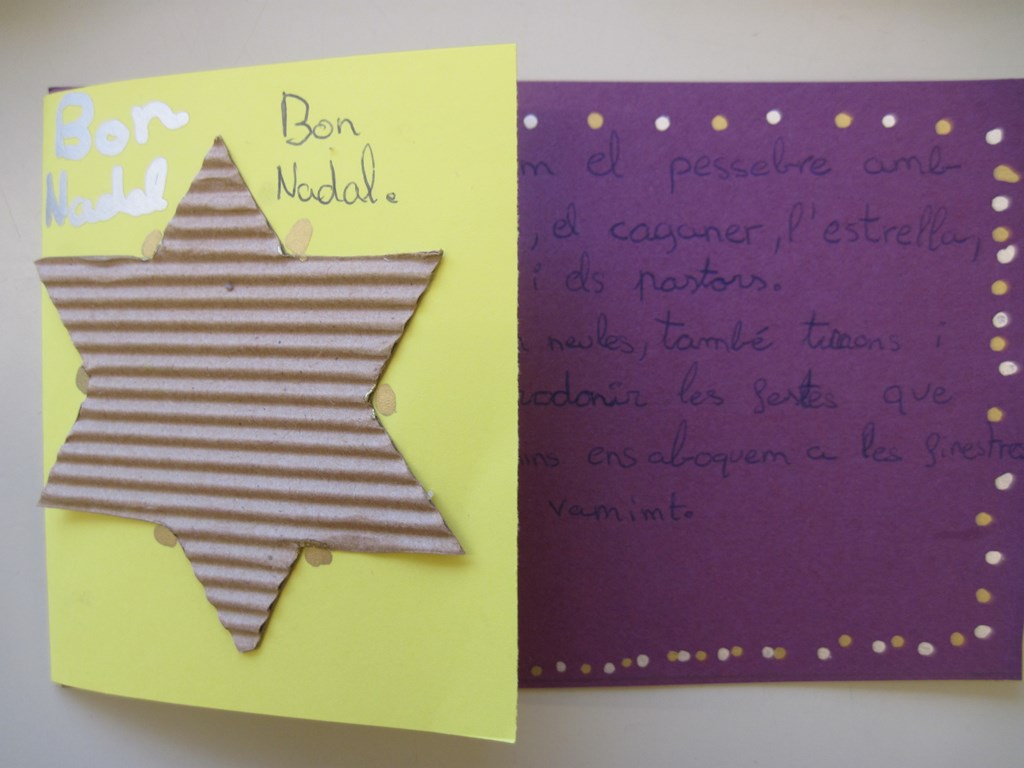 Bon
Nadal
Bon
Nadal.
el pessebre amb
, el caganer, l'estrella,
i els pastors.
neules, també torrons i
les festes que
ens aboquem a les finestres